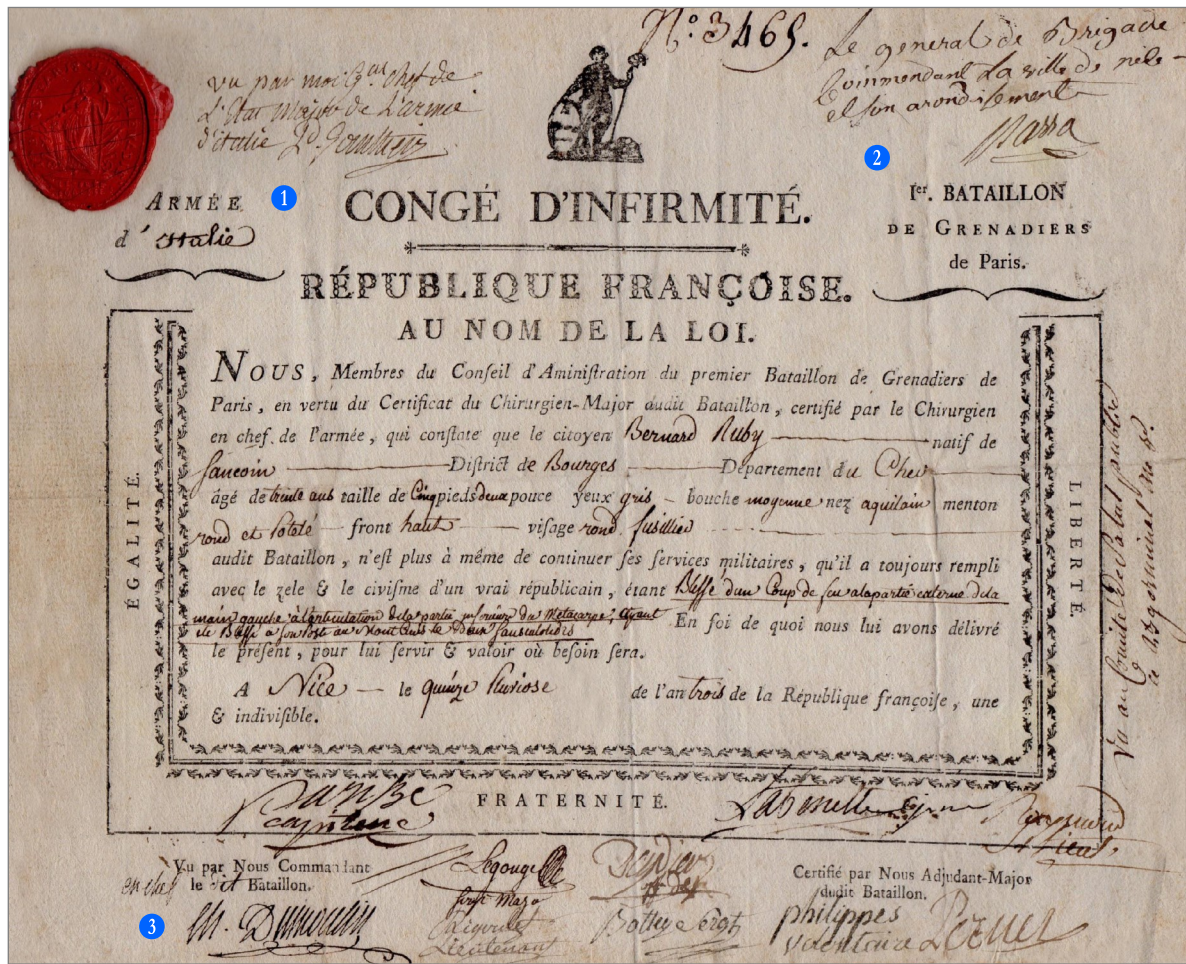 N.º 3465.
vu par moi Gal. Chef de
L'Etat major de L'armée
d'italie
Le general de Brigade
Commendant La ville de
et son arondisement
1
2
ARMÉE
d'Italie
CONGÉ D'INFIRMITÉ.
Ier. BATAILLON
DE GRENADIERS
de Paris.
RÉPUBLIQUE FRANÇOISE.
AU NOM DE LA LOI.
NOUS, Membres du Conſeil d'Aminiſtration du premier Bataillon de Grenadiers de
Paris, en vertu du Certificat du Chirurgien-Major dudit Bataillon, certifié par le Chirurgien
en chef de l'armée, qui conſtate que le citoyen Bernard Ruby natif de
Sancoin District de Bourges Département du Cher
âgé de trente ans taille de Cinq pieds deux pouce yeux gris - bouche moyenne nez aquilain menton
rond et front haut viſage rond fusillier
audit Bataillon, n'eſt plus à même de continuer ſes ſervices militaires, qu'il a toujours rempli
avec le zele & le civiſme d'un vrai républicain, étant Blessé dun Coup de feu alapartie externe dela
main gauche à l'articulation dela partie du Metacarpe, ayant
Blessé a son Post au En foi de quoi nous lui avons délivré
le préſent, pour lui ſervir & valoir où beſoin ſera.
A Nice — le quinze Pluviose de l'an trois de la République françoiſe, une
& indiviſible.
ÉGALITÉ.
LIBERTÉ.
Vu au Comité de Salut public
ce 23 germinal
FRATERNITÉ.
capitaine
Vu par Nous Commandant
en chef le dit Bataillon.
Legouge
Lieutenant
Certifié par Nous Adjudant-Major
dudit Bataillon.
3
Ch. Dumoulin
philippes
volontaire